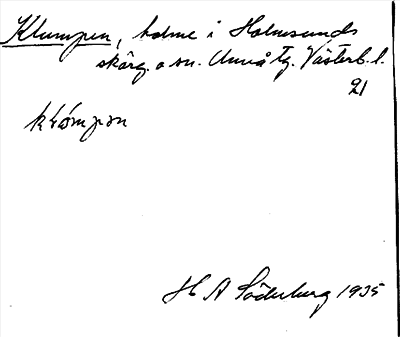 Klumpen, holme i Holmsunds
skärg. o sn. Umeå tg. Västerb. l.
21
H A Söderburg 1935